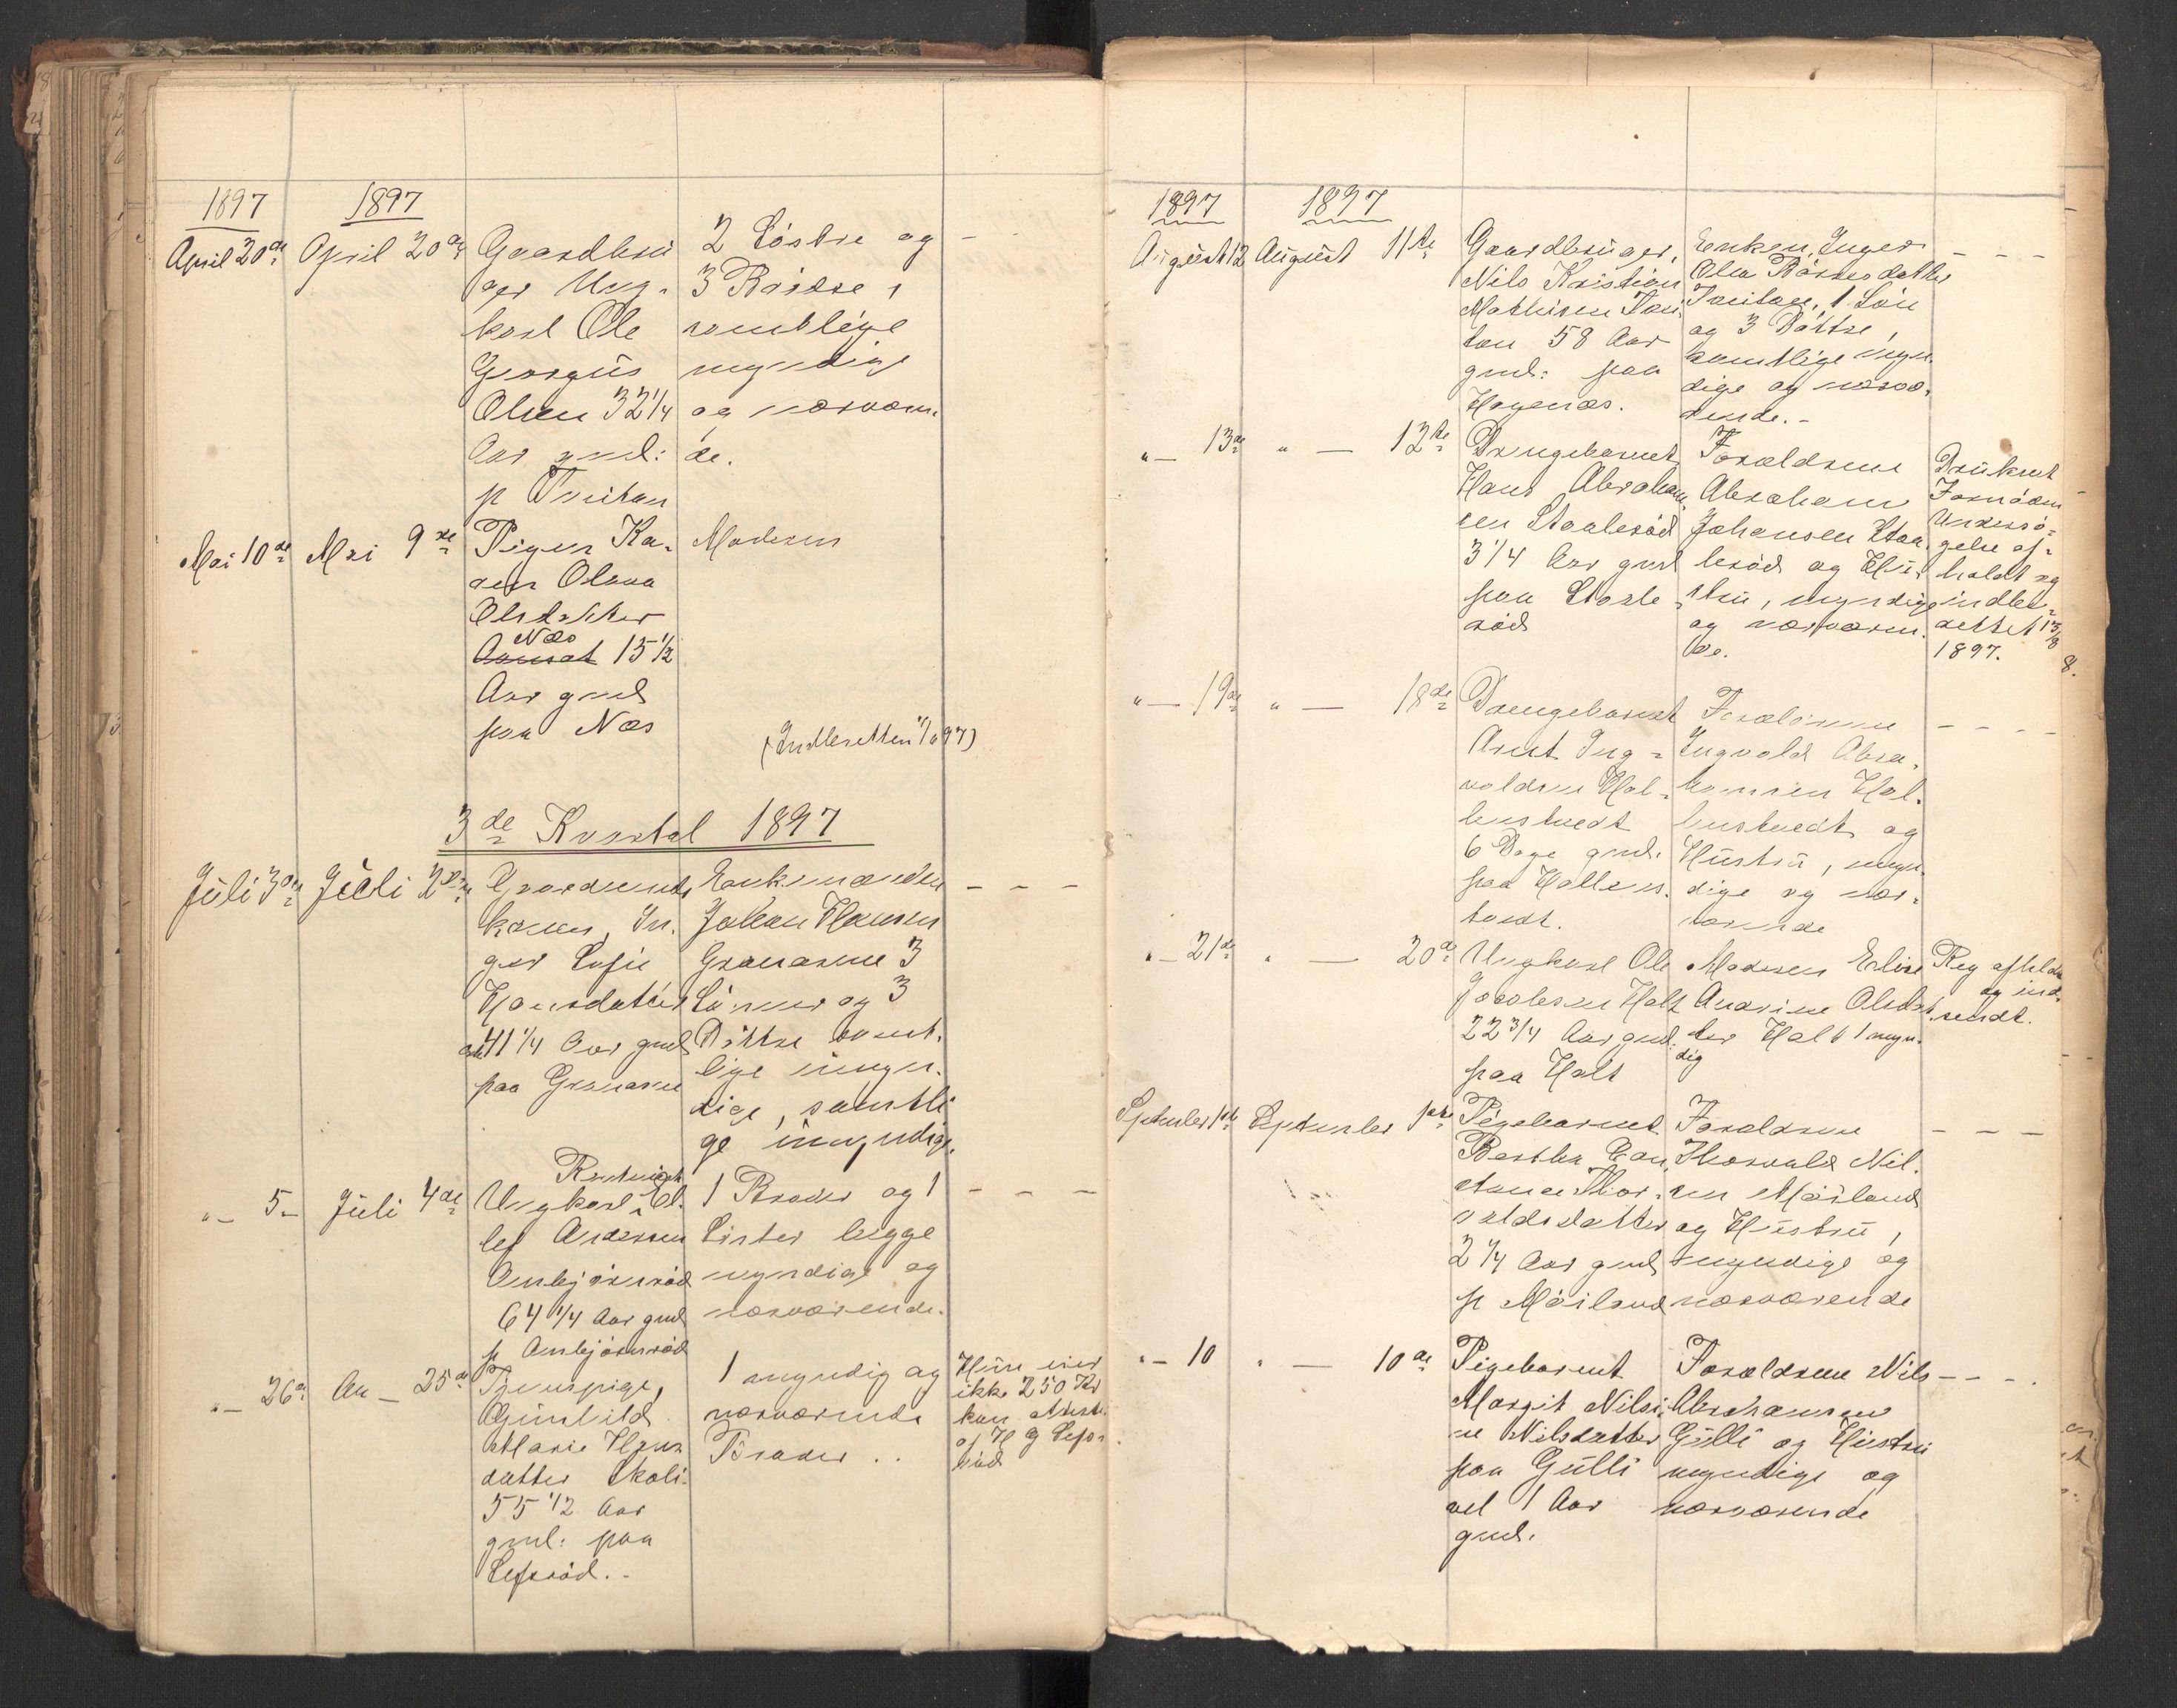 1897
1897
April 20de
April 20de
Gaardbru
ger Ung-
karl Ole
Georgius
Olsen 32 1/4
Aar gml:
p Tveitan
2 Söstre og
3 Brödre,
samtlige
myndige
og nærværen
de.
-
Mai 10de
Mai 9de
Pigen Ka-
ren Olava
Olsdatter
Næs
15 1/2
Aar gml
paa Næs
Moderen
(Indberetten 97)
3de Kvartal 1897
Juli 3de
Juli 2den
Gaardmands
konen, In-
ger Sofie
Hansdatter
41 1/4 Aar gml
paa Granaasen
Enkemanden
Johan Hansen
Granaasen 3
Sönner og 3
Döttre samt-
lige umyn-
dige, samtli
ge umyndige.
- - -
„ - 5-
Juli 4de
Ungkarl El-
lef Andersen
Ambjörnröd
64 1/4 Aar gml
p Ambjörnröd
1 Broder og 1
Sister begge
myndige og
nærværende.
- - -
„ - 26de
Au - 25de
Tjenspige,
Gunhild
Marie Hans
datter Skoli-
55 1/2 Aar
gml: paa
Lefsröd. -
1 myndig og
nærværende
Broder . .
Hun eier
ikke 250 Kr
kun attest
af H G Lefs-
röd
1897
1897
August 12
August 11te
Gaardbruger,
Nils Kristian
Mathisen Tvei
tan 58 Aar
gml: paa
Hagenæs.
Enken, Inger
Olea Börresdatter
Tveitan, 1 Sön
og 3 Döttre,
samtlige myn-
dige og nærvæ-
rende. -
- - -
„ - 13de
„ - 12te
Drengebarnet
Hans Abraham-
sen Staalesöd
3 1/4 Aar gml
paa Staale-
röd
Forældrene
Abraham
Johansen Staa-
leröd og Hu-
stru, myndige
og nærværen-
de.
Druknet
Fornöden
Undersö-
gelse af-
holdt og
indbe-
rettet 13/8
1897.
„ - 19de
„ - 18de
Drengebarnet
Arnt Ing-
valdsen Hal-
lenstvedt
6 Dage gml.
paa Hallens-
tvedt.
Forældrene
Ingvald Abra-
hamsen Hal-
lenstvedt og
Hustru, myn-
dige og nær-
værende
- - - -
„ - 21de
„ - 20de
Ungkarl Ole
Jacobsen Holt
22 3/4 Aar gml.
paa Holt
Moderen Elise
Andrine Olsdat
ter Holt 1 myn-
dig
Reg afholdt
og ind-
sendt.
September 1ste
September 1ste
Pigebarnet
Bertha Con-
stance Thor-
valdsdatter
2 1/4 Aar gml
p Möiland
Forældrene
Thorvald Nil-
sen Möiland
og Hustru,
myndige og
nærværende
- - -
„ - 10
„ - 10de
Pigebarnet
Margit Nilsi-
ne Nilsdatter
paa Gulli
vel 1 Aar
gml.
Forældrene Nils
Abrahamsen
Gulli og Hustru
myndige og
nærværende
- - -